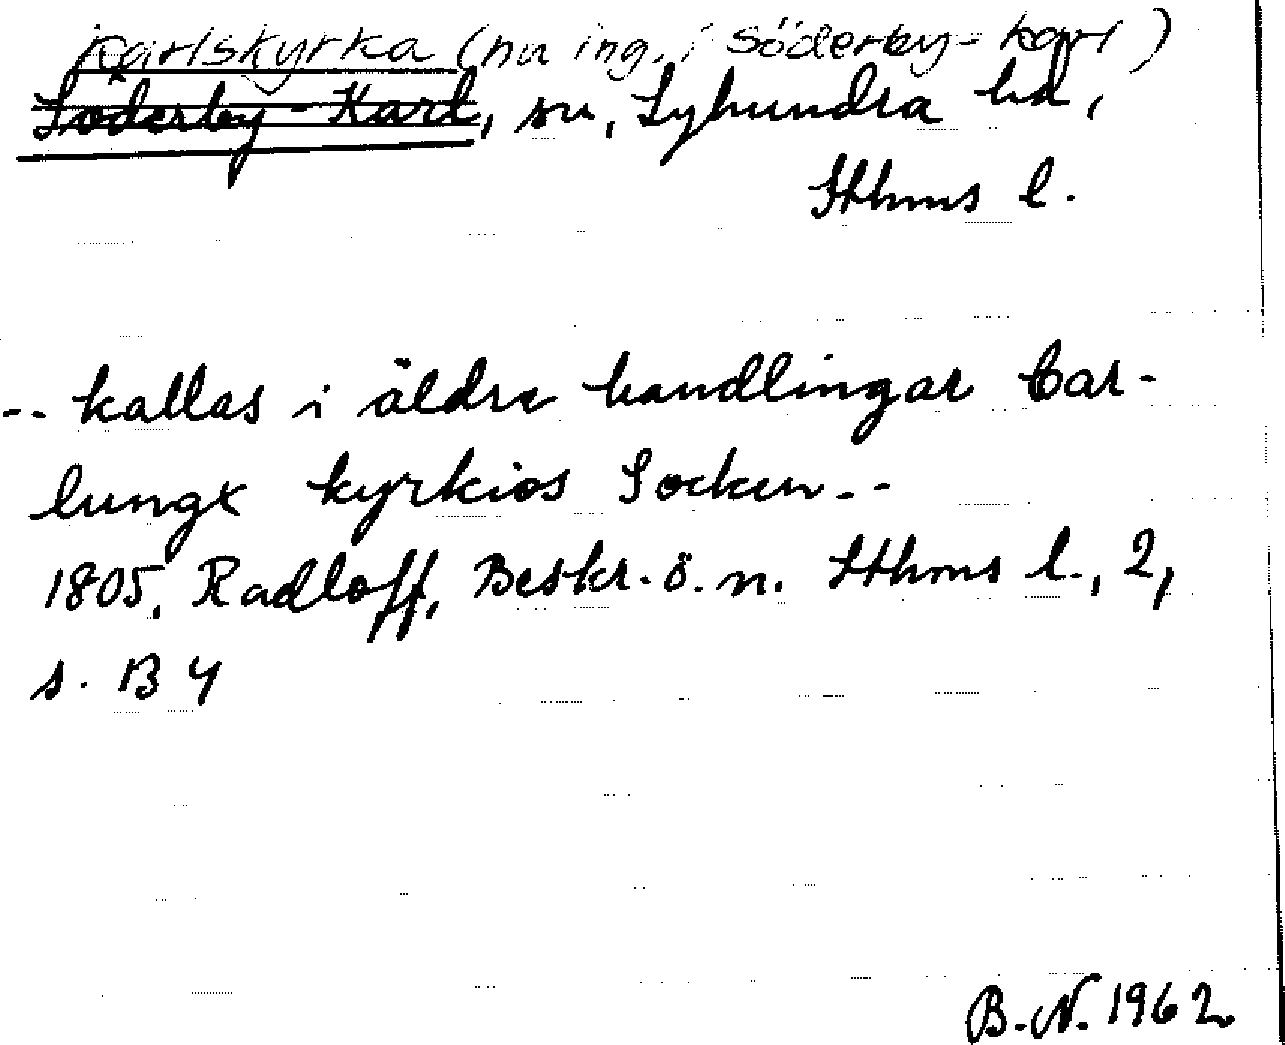 Karlskyrka (nu ing. i Söderby-Karl)
Söderby-Karl, sn, Lyhundra hd,
Sthms l.
-- kallas i äldre handlingar Car-
lungx kyrkios Socken --
1805, Radloff, Beskr. ö. n. Sthms l., 2,
s. B 4
B.N. 1962